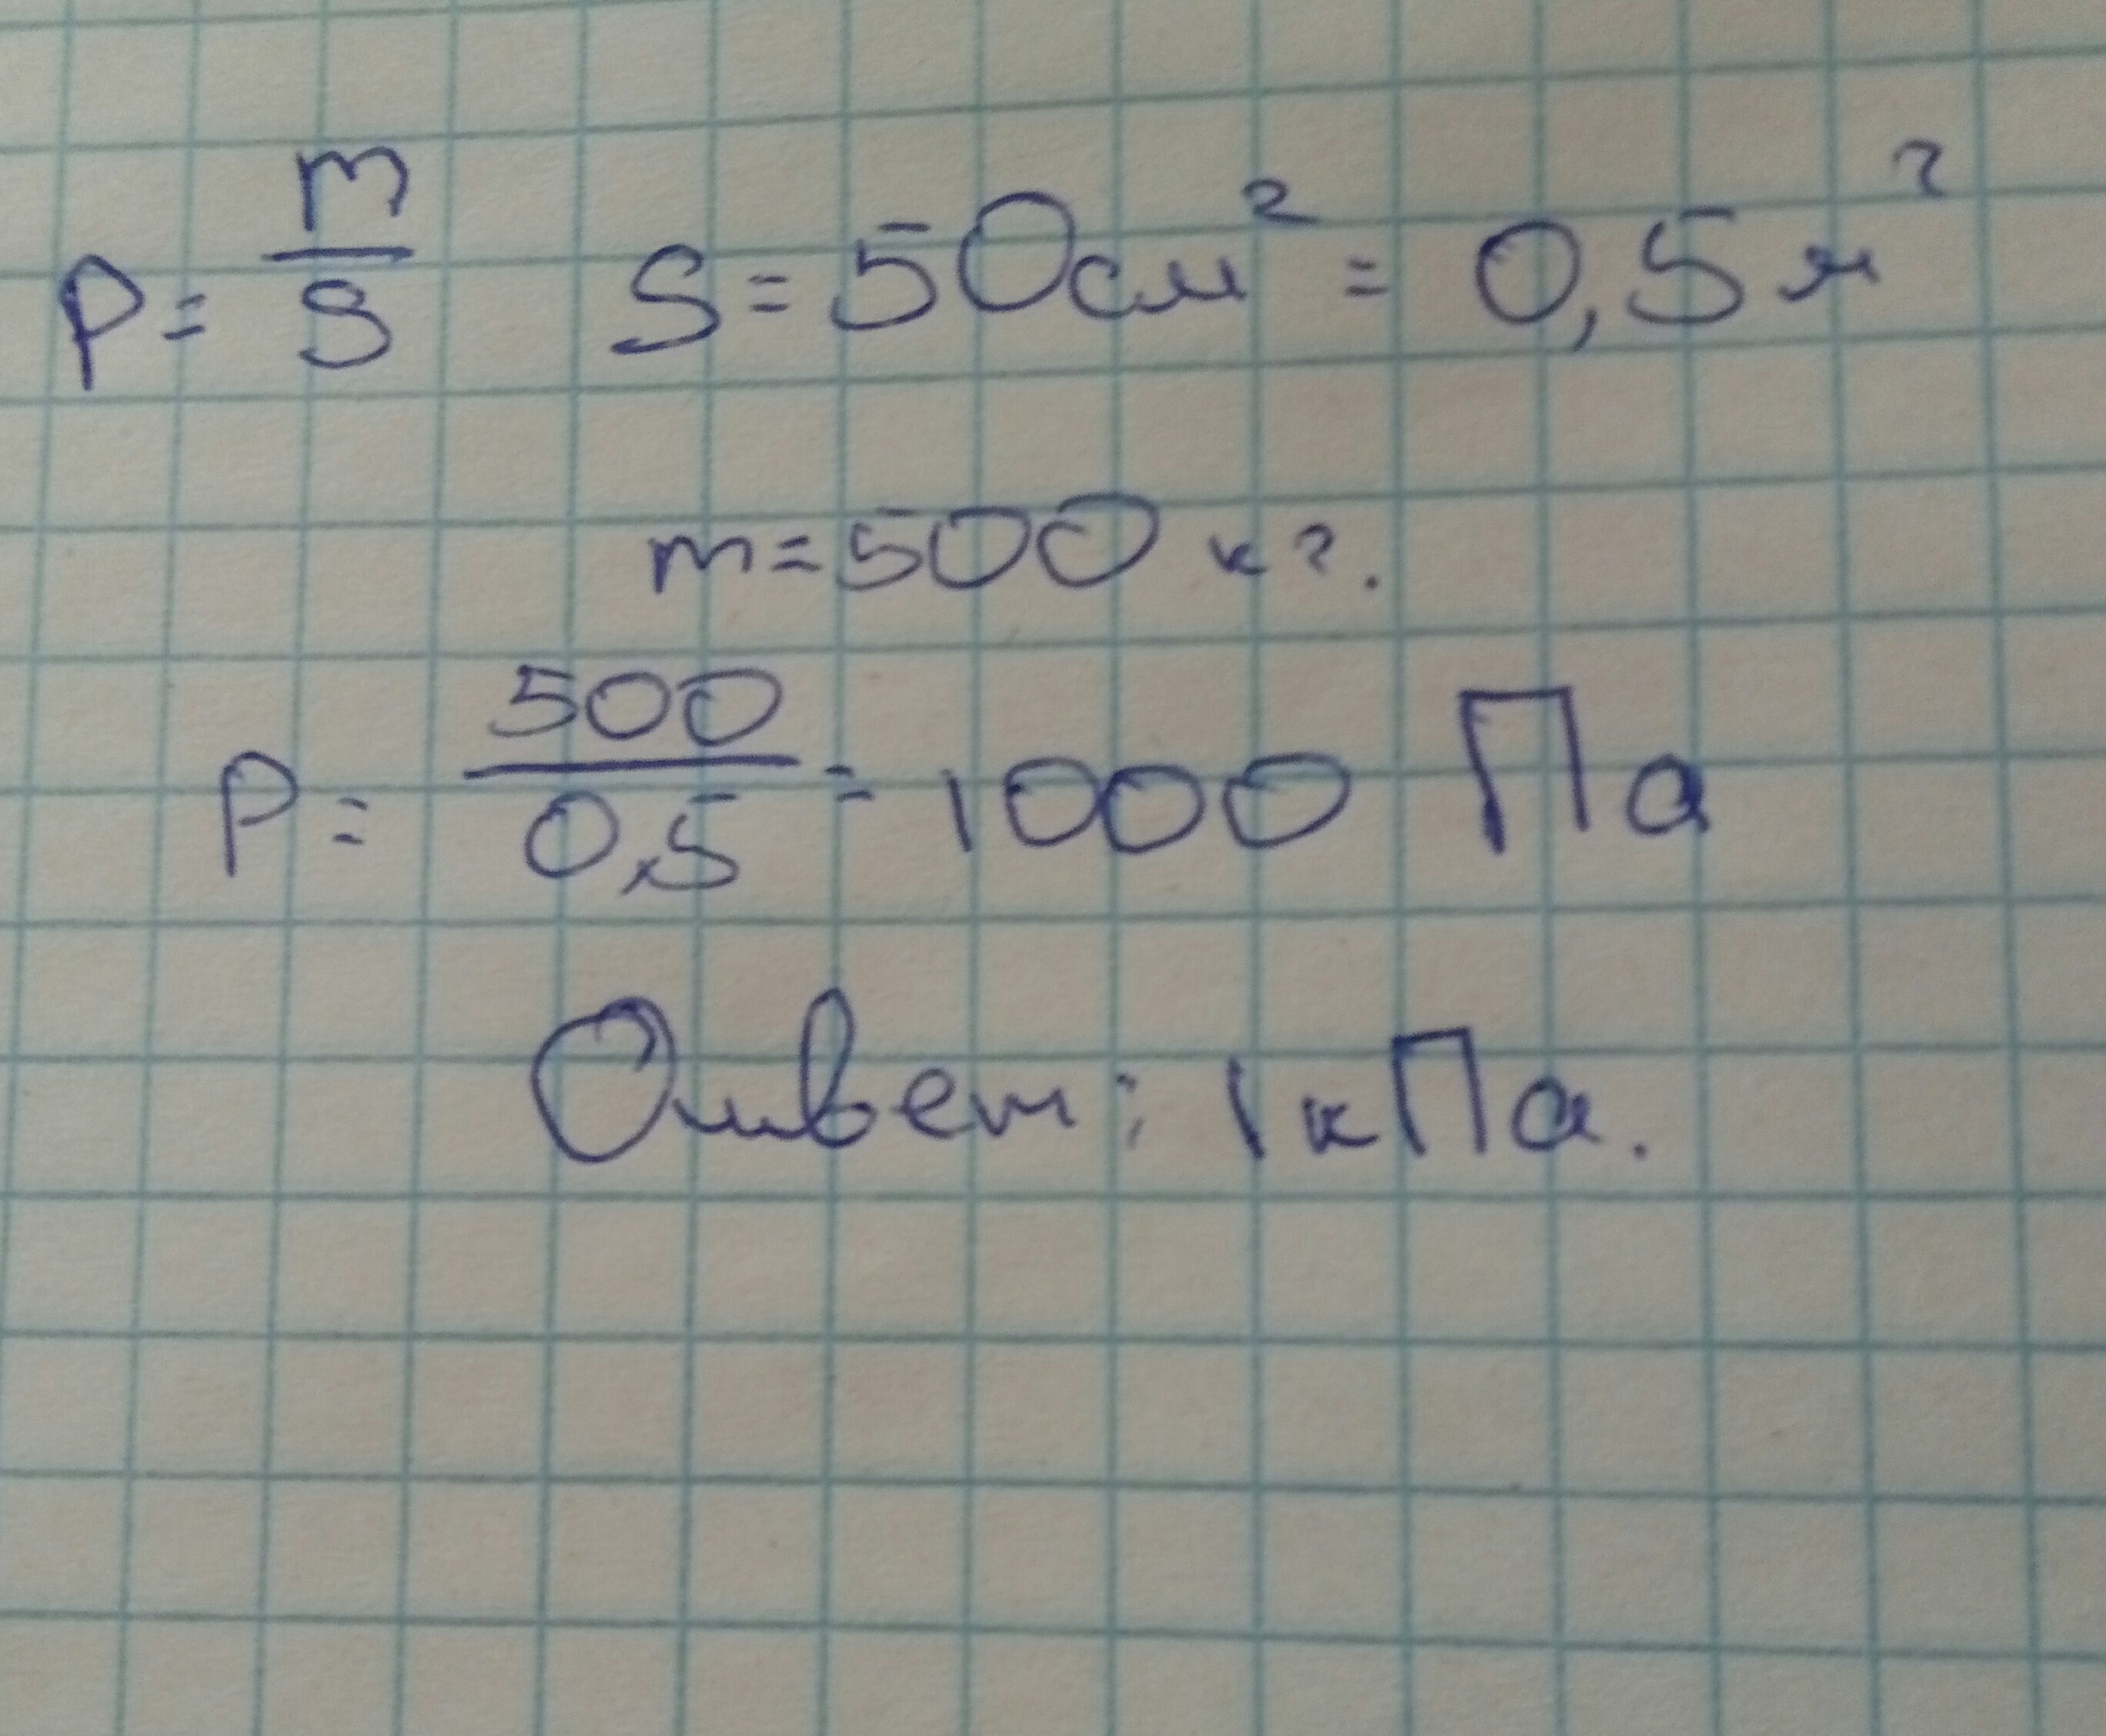 P = m/S   S = 50 см² = 0,5 м²
m = 500 кг.
P = 500/0,5 = 1000 Па
Ответ: 1 кПа.